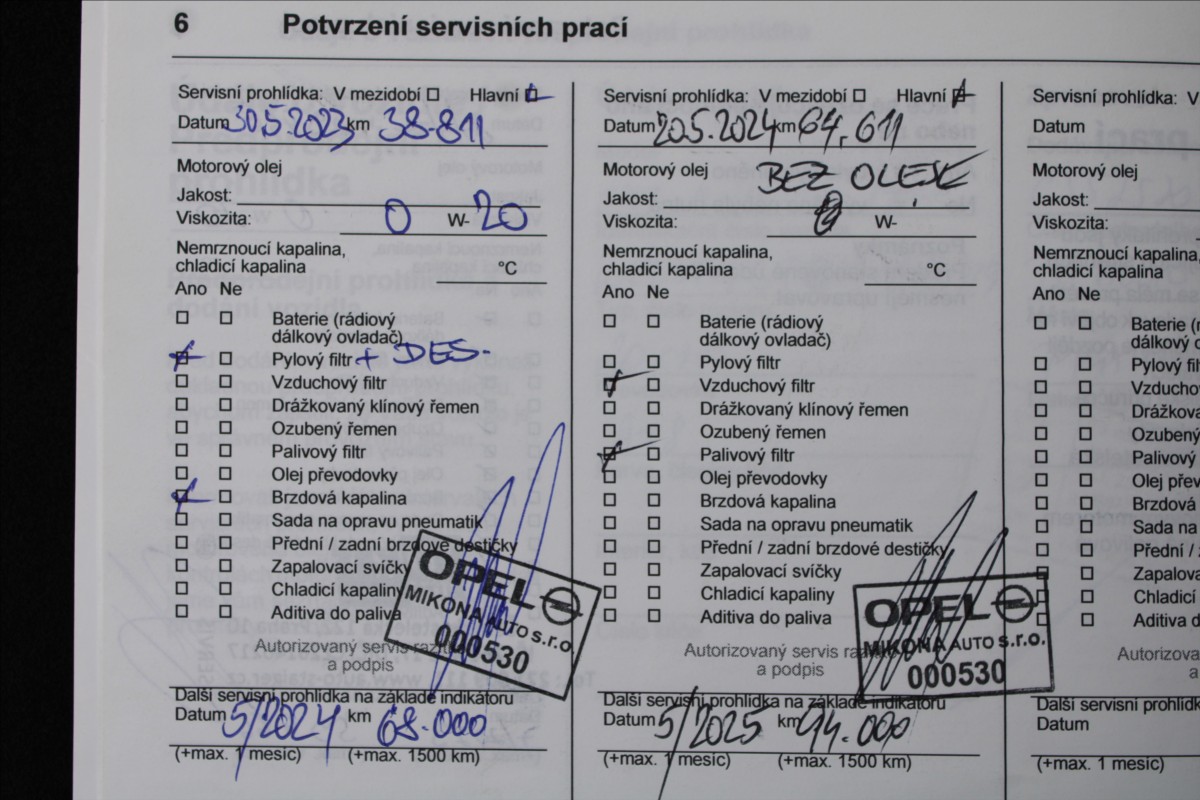 6 Potvrzení servisních prací
Servisní prohlídka: V mezidobí Hlavní
Datum 30.5.2023 km 38-811
Motorový olej
Jakost:
Viskozita: 0 W- 20
Nemrznoucí kapalina,
chladicí kapalina °C
Ano Ne
Baterie (rádiový
dálkový ovladač)
Pylový filtr + DES.
Vzduchový filtr
Drážkovaný klínový řemen
Ozubený řemen
Palivový filtr
Olej převodovky
Brzdová kapalina
Sada na opravu pneumatik
Přední / zadní brzdové destičky
Zapalovací svíčky
Chladicí kapaliny
Aditiva do paliva
OPEL
MIKONA AUTO s.r.o.
000530
Autorizovaný servis razítko
a podpis
Další servisní prohlídka na základě indikátoru
Datum 5/2024 km 68.000
(+max. 1 měsíc) (+max. 1500 km)
Servisní prohlídka: V mezidobí Hlavní
Datum 20.5.2024 km 64.611
Motorový olej BEZ OLEJE
Jakost:
Viskozita: W-
Nemrznoucí kapalina,
chladicí kapalina °C
Ano Ne
Baterie (rádiový
dálkový ovladač)
Pylový filtr
Vzduchový filtr
Drážkovaný klínový řemen
Ozubený řemen
Palivový filtr
Olej převodovky
Brzdová kapalina
Sada na opravu pneumatik
Přední / zadní brzdové destičky
Zapalovací svíčky
Chladicí kapaliny
Aditiva do paliva
OPEL
MIKONA AUTO s.r.o.
000530
Autorizovaný servis
a podpis
Další servisní prohlídka na základě indikátoru
Datum 5/2025 km 94.000
(+max. 1 měsíc) (+max. 1500 km)
Servisní prohlídka: V
Datum
Motorový olej
Jakost:
Viskozita:
Nemrznoucí kapalina,
chladicí kapalina
Ano Ne
Baterie (r
dálkový o
Pylový filt
Vzducho
Drážkov
Ozubený
Palivový
Olej přev
Brzdová
Sada na
Přední /
Zapalova
Chladicí
Aditiva d
Autorizova
a
Další servisní prohlíd
Datum
(+max. 1 měsíc)